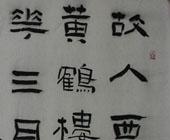 故人西
黄鶴樓
花三月